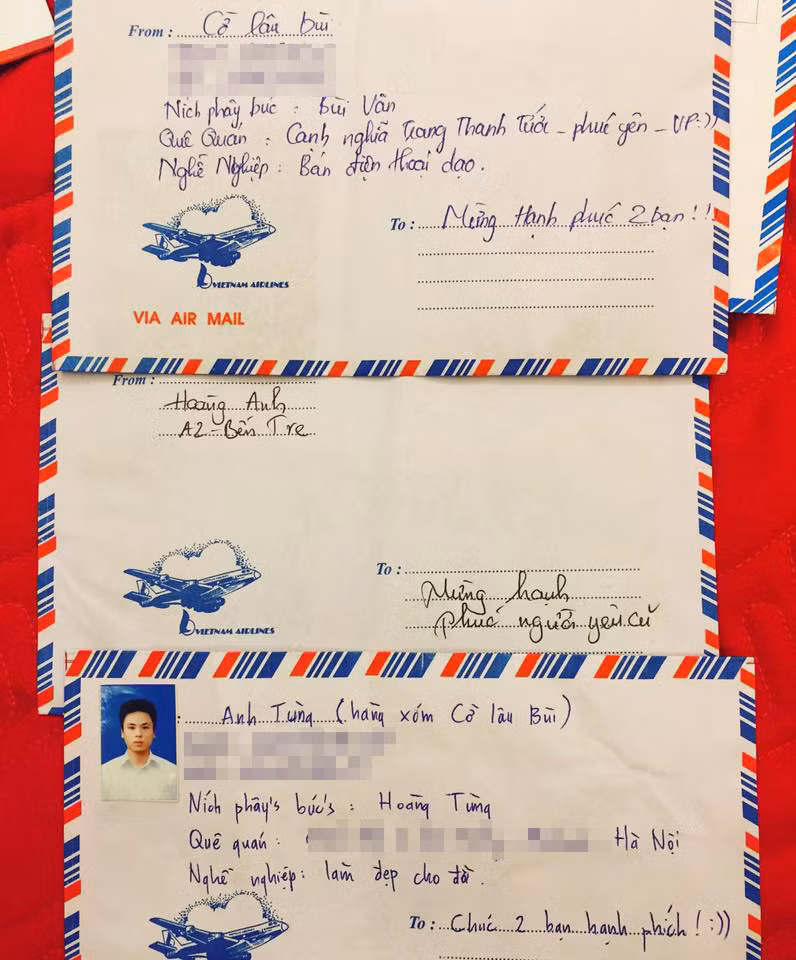 From : Cờ lâu bùi
Ních phây búc : Bùi Vân
Quê Quán : Cạnh nghĩa Trang Thanh Tước - phúc yên - VP :))
Nghề Nghiệp : Bán điện thoại dạo.
To : Mừng Hạnh phúc 2 bạn ! !
VIETNAM AIRLINES
VIA AIR MAIL
From :
Hoàng Anh
A2 - Bến Tre
To :
Mừng hạnh
phúc người yêu cũ
VIETNAM AIRLINES
: Anh Tùng (hàng xóm Cờ lâu Bùi)
Ních phây's búc's : Hoàng Tùng
Quê quán : Hà Nội
Nghề nghiệp : làm đẹp cho đời.
To : Chúc 2 bạn hạnh phích ! :))